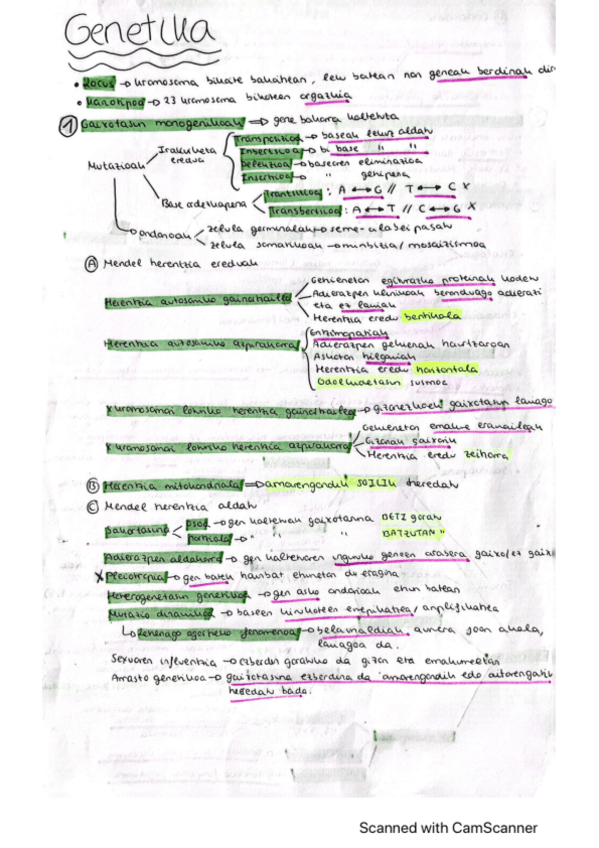 Genetika
• Locus → kromosoma bikote bakoitzean, leku batean non geneak berdinak dir
• Kariotipoa → 23 kromosoma bikoteen argazkia
① Gaixotasun monogenikoak ⇒ gene bakarra kaltetuta
Mutazioak
Irakurketa eredua
Transposizioa → baseak lekuz aldatu
Insertsioa → bi base " "
Delezioa → basearen eliminazioa
Insertzioa → " gehipena
Base ordezkapena
Trantsizioa : A ↔ G // T ↔ C X
Transbertsioa : A ↔ T // C ↔ G X
Ondorioak
zelula germinalak → seme-alabei pasatu
zelula somatikoak → minbizia / mosaizismoa
Ⓐ Mendel herentzia ereduak
Herentzia autosomiko gainartzailea
Gehienetan egiturazko proteinak kodetu
Adierazpen klinikoak beranduago adierazi
eta ez larriak
Herentzia eredu bertikala
Herentzia autosomiko azpirakorra
Entzimopatiak
Adierazpen gehienak haurtzaroan
Askotan hilgarriak
Herentzia eredu horizontala
Odolkidetasun susmoa
X kromosomari loturiko herentzia gainartzailea → gizonezkoek gaixotasun larriago
X kromosomari loturiko herentzia azpirakorra
Gehienetan emakume eramaileak
Gizonak gaixotu
Herentzia eredu zeiharra
Ⓑ Herentzia mitokondriala ⇒ amarengandik SOILIK heredatu
Ⓒ Mendel herentzia aldatu
Sakortasuna
osoa → gen kaltetuak gaixotasuna BETI garatu
partziala → " " BATZUTAN "
Adierazpen aldakorra → gen kaltetuaren inguruko geneen arabera gaixo/ez gaix
X Pleiotropia → gen batek hainbat ehunetan du eragina
Heterogenotasun genetikoa → gen asko ondorioak ehun batean
Mutazio dinamikoa → baseen hirukoteen errepikatzea / anplifikatzea
↳ Lehenago agertzeko fenomenoa → belaunaldiak aurrera joan ahala,
larriagoa da.
Sexuaren influentzia → ezberdin garatuko da gizon eta emakumeetan
Arrasto genetikoa → gaixotasuna ezberdina da amarengandik edo aitarengandik
heredatu bada.
Scanned with CamScanner